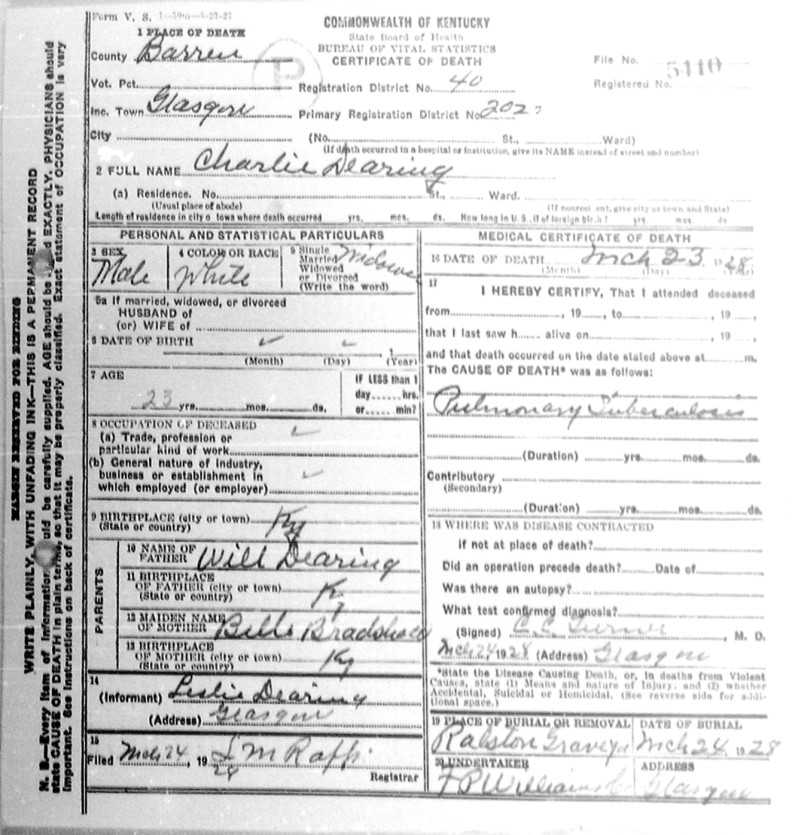 Form V. S. 1-50m-5-23-27
COMMONWEALTH OF KENTUCKY
State Board of Health
BUREAU OF VITAL STATISTICS
CERTIFICATE OF DEATH
1 PLACE OF DEATH
County Barren
Vot. Pct.
Inc. Town Glasgow
City
P
File No. 5110
Registered No.
Registration District No. 40
Primary Registration District No.
(No. St., Ward)
(If death occurred in a hospital or institution, give its NAME instead of street and number)
2 FULL NAME Charlie Dearing
(a) Residence. No. St., Ward.
(Usual place of abode) (If nonresident, give city or town and State)
Length of residence in city or town where death occurred yrs. mos. ds. How long in U.S., if of foreign birth? yrs. mos. ds.
PERSONAL AND STATISTICAL PARTICULARS
3 SEX Male
4 COLOR OR RACE White
5 Single
Married
Widowed
or Divorced
(Write the word)
Widowed
5a If married, widowed, or divorced
HUSBAND of
(or) WIFE of
6 DATE OF BIRTH
(Month) (Day) (Year)
7 AGE
23 yrs. mos. ds.
IF LESS than 1
day hrs.
or min?
8 OCCUPATION OF DECEASED
(a) Trade, profession or
particular kind of work
(b) General nature of Industry,
business or establishment in
which employed (or employer)
9 BIRTHPLACE (city or town) Ky
(State or country)
PARENTS
10 NAME OF
FATHER Will Dearing
11 BIRTHPLACE
OF FATHER (city or town) Ky
(State or country)
12 MAIDEN NAME
OF MOTHER Belle Bradshaw
13 BIRTHPLACE
OF MOTHER (city or town) Ky
(State or country)
14
(Informant) Leslie Dearing
(Address) Glasgow
15
Filed Mch 24, 1928
Registrar
MEDICAL CERTIFICATE OF DEATH
16 DATE OF DEATH Mch 23 1928
(Month) (Day) (Year)
17
I HEREBY CERTIFY, That I attended deceased
from , 19 , to , 19
that I last saw h alive on , 19
and that death occurred on the date stated above at m.
The CAUSE OF DEATH* was as follows:
Pulmonary Tuberculosis
(Duration) yrs. mos. ds.
Contributory
(Secondary)
(Duration) yrs. mos. ds.
18 WHERE WAS DISEASE CONTRACTED
if not at place of death?
Did an operation precede death? Date of
Was there an autopsy?
What test confirmed diagnosis?
(Signed) C.C. Turner, M. D.
Mch 24, 1928 (Address) Glasgow
*State the Disease Causing Death, or, in deaths from Violent
Causes, state (1) Means and nature of Injury; and (2) whether
Accidental, Suicidal or Homicidal. (See reverse side for addi-
tional space.)
19 PLACE OF BURIAL OR REMOVAL
Ralston
DATE OF BURIAL
Mch 24 1928
20 UNDERTAKER
ADDRESS
Glasgow
MARGIN RESERVED FOR BINDING
WRITE PLAINLY, WITH UNFADING INK—THIS IS A PERMANENT RECORD
N. B.—Every item of information should be carefully supplied. AGE should be EXACTLY. PHYSICIANS should
state CAUSE OF DEATH in plain terms, so that it may be properly classified. Exact statement of OCCUPATION is very
important. See instructions on back of certificate.